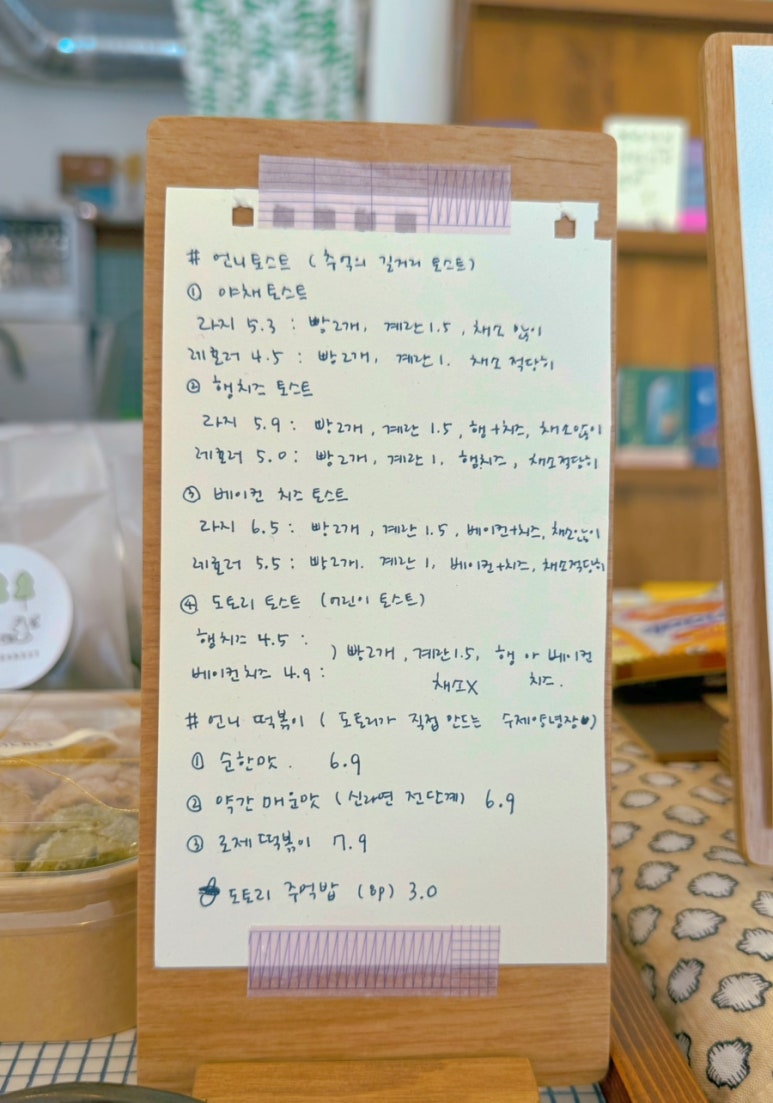 # 언니토스트 (추억의 길거리 토스트)
① 야채토스트
라지 5.3 : 빵2개, 계란 1.5, 채소 많이
레귤러 4.5 : 빵2개, 계란 1. 채소 적당히
② 햄치즈 토스트
라지 5.9 : 빵2개, 계란 1.5, 햄+치즈, 채소많이
레귤러 5.0 : 빵2개, 계란 1. 햄치즈, 채소적당히
③ 베이컨 치즈 토스트
라지 6.5 : 빵2개, 계란 1.5, 베이컨+치즈, 채소많이
레귤러 5.5 : 빵2개. 계란 1, 베이컨+치즈, 채소적당히
④ 도토리 토스트 (어린이 토스트)
햄치즈 4.5 :
) 빵2개, 계란1.5, 햄 or 베이컨
베이컨치즈 4.9 :
채소X 치즈.
# 언니 떡볶이 ( 도토리가 직접 만드는 수제양념장)
① 순한맛. 6.9
② 약간 매운맛 (신라면 전단계) 6.9
③ 로제떡볶이 7.9
도토리 주먹밥 (8p) 3.0